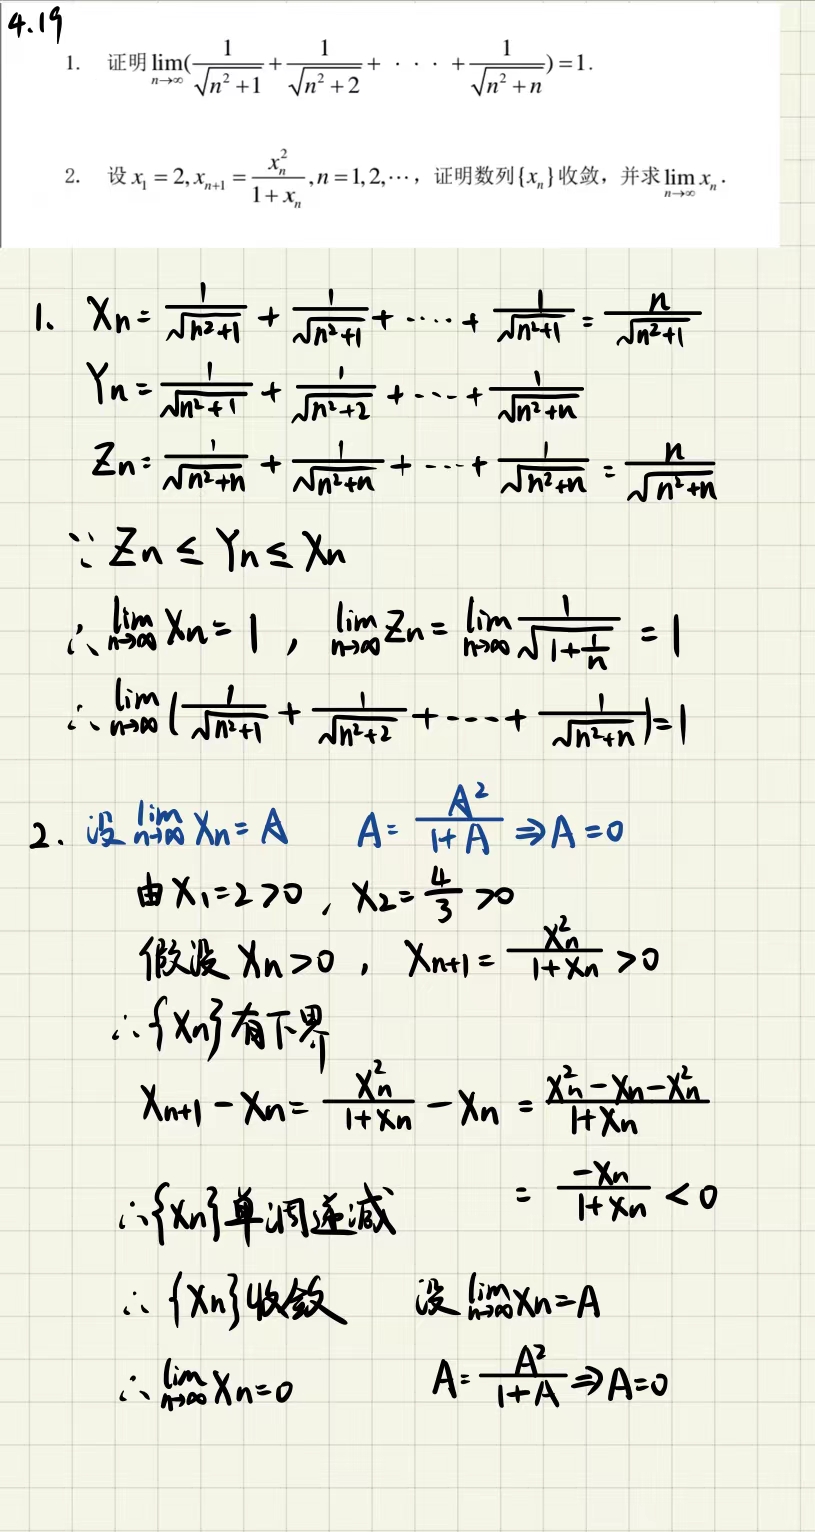 4.19
1. 证明 lim_{n→∞}(1/√(n²+1) + 1/√(n²+2) + · · · + 1/√(n²+n)) = 1.
2. 设 x₁ = 2, x_{n+1} = x_n²/(1+x_n), n = 1, 2, ⋯, 证明数列{x_n}收敛，并求 lim_{n→∞} x_n.
1、 Xn = 1/√(n²+1) + 1/√(n²+1) + ····· + 1/√(n²+1) = n/√(n²+1)
Yn = 1/√(n²+1) + 1/√(n²+2) + ···· + 1/√(n²+n)
Zn = 1/√(n²+n) + 1/√(n²+n) + ···· + 1/√(n²+n) = n/√(n²+n)
∵ Zn ≤ Yn ≤ Xn
∴ lim_{n→∞} Xn = 1 , lim_{n→∞} Zn = lim_{n→∞} 1/√(1+1/n) = 1
∴ lim_{n→∞} (1/√(n²+1) + 1/√(n²+2) + ···· + 1/√(n²+n)) = 1
2. 设 lim_{n→∞} Xn = A A = A²/(1+A) ⇒ A = 0
由 X₁ = 2 > 0 , X₂ = 4/3 > 0
假设 Xn > 0 , X_{n+1} = Xn²/(1+Xn) > 0
∴ {Xn} 有下界
X_{n+1} − Xn = Xn²/(1+Xn) − Xn = (Xn² − Xn − Xn²)/(1+Xn)
= −Xn/(1+Xn) < 0
∴ {Xn} 单调递减
∴ {Xn} 收敛 设 lim_{n→∞} Xn = A
∴ lim_{n→∞} Xn = 0 A = A²/(1+A) ⇒ A = 0